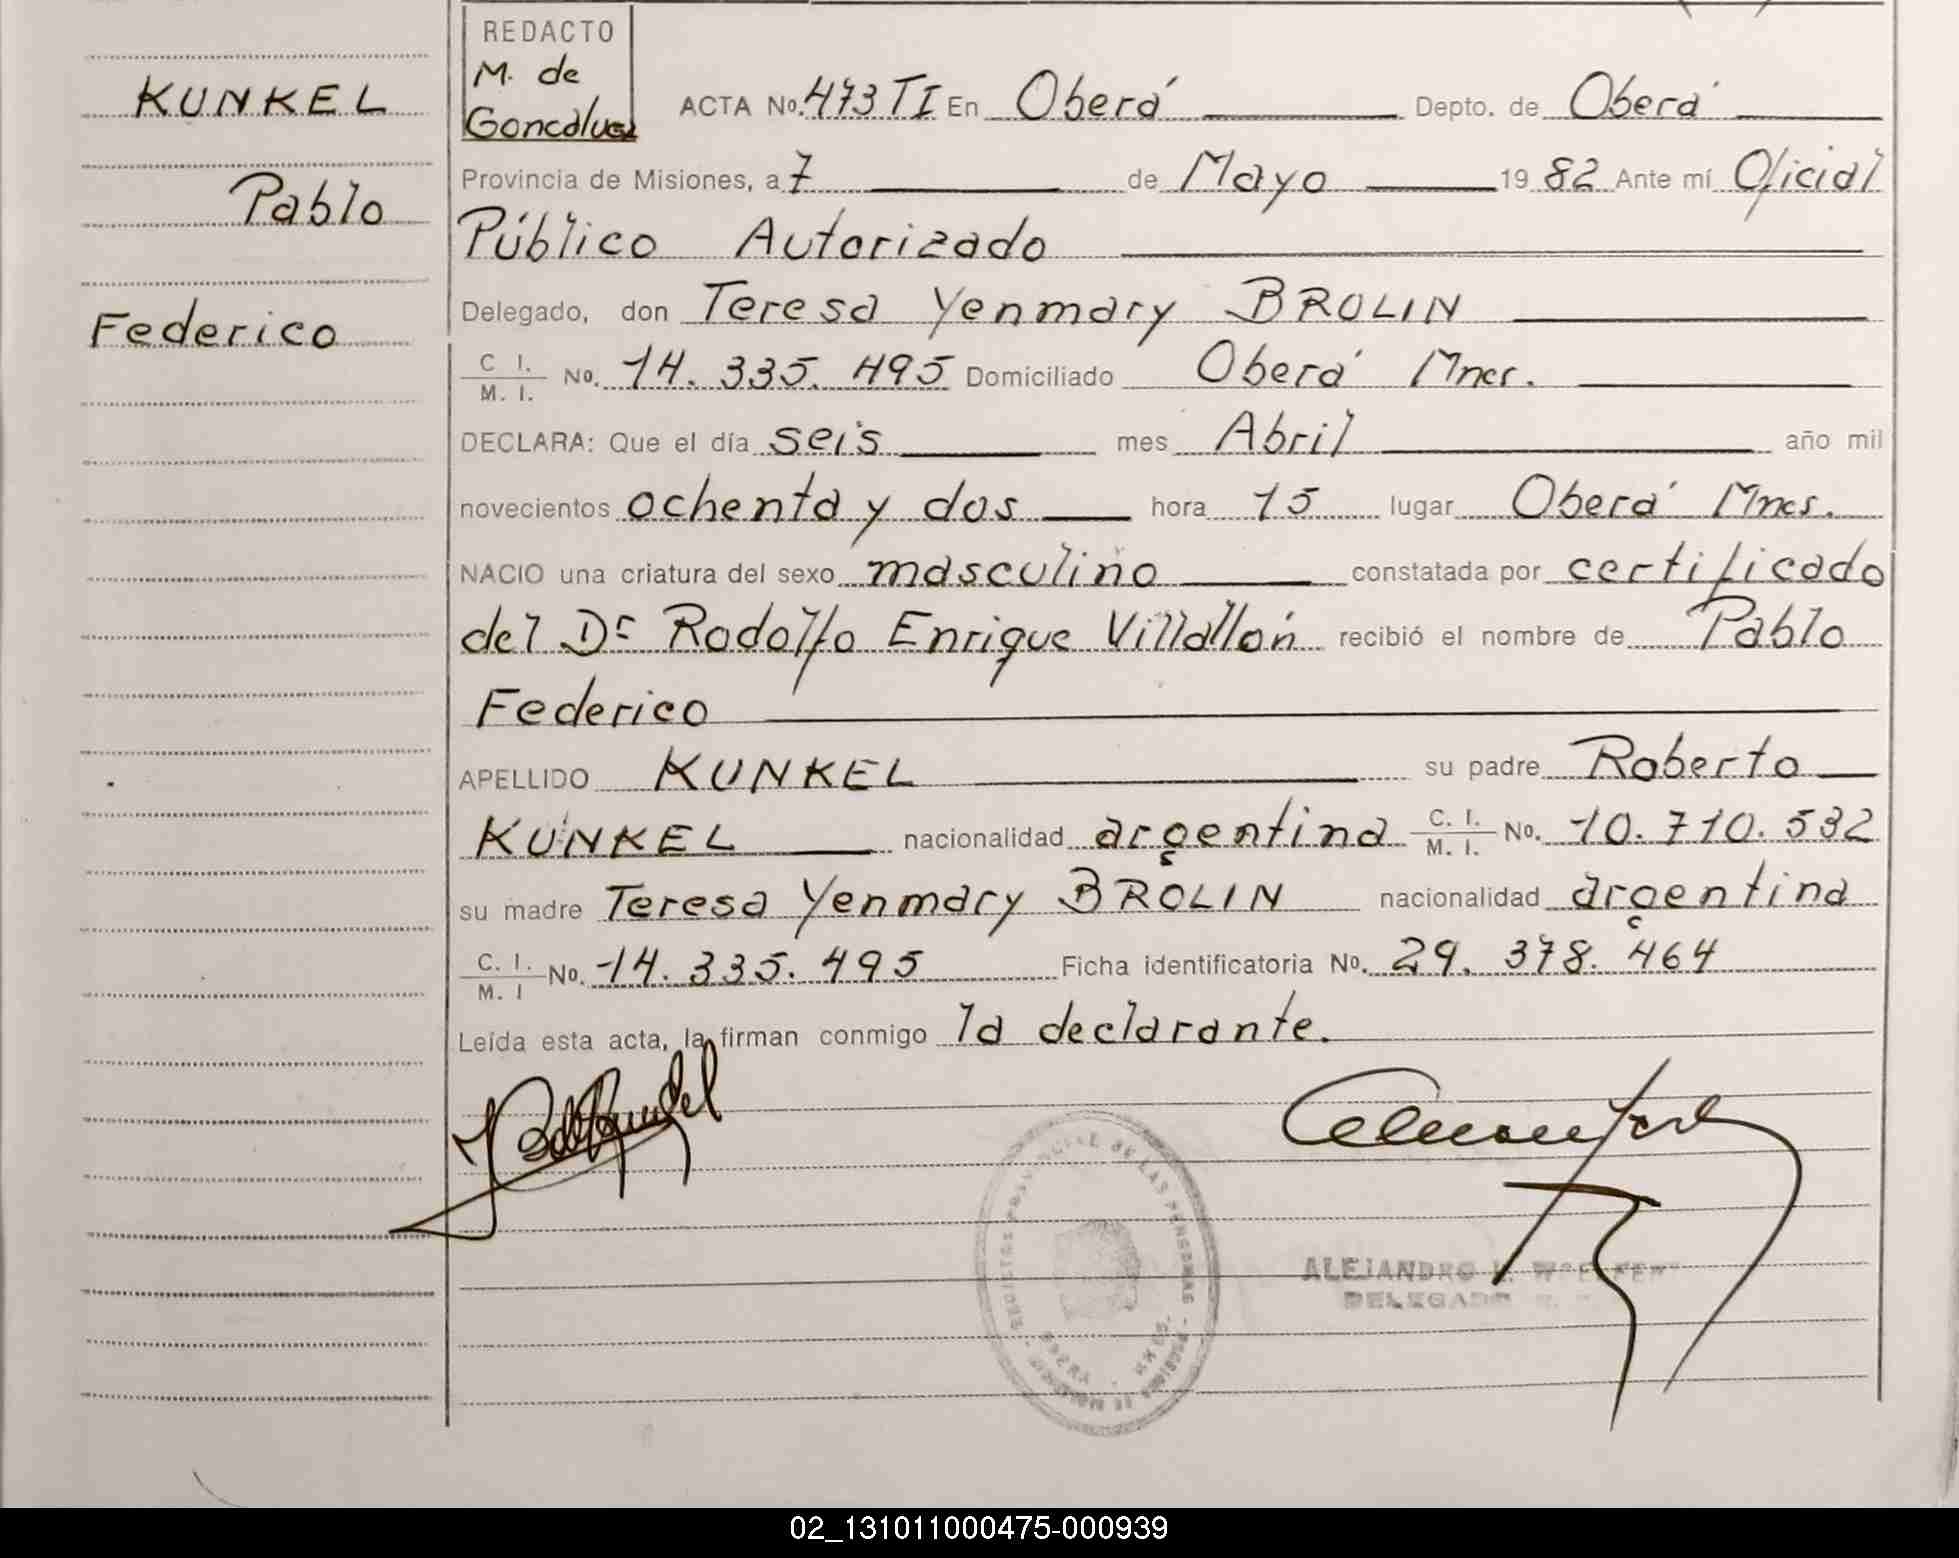 REDACTO
M. de
Goncalves
KUNKEL
Pablo
Federico
ACTA No. 473 TI En Oberá Depto. de Oberá
Provincia de Misiones, a 7 de Mayo 19 82 Ante mí Oficial
Público Autorizado
Delegado, don Teresa Yenmary BROLIN
C. I. / M. I. No. 14. 335. 495 Domiciliado Oberá Mnes.
DECLARA: Que el día seis mes Abril año mil
novecientos ochenta y dos hora 15 lugar Oberá Mnes.
NACIO una criatura del sexo masculino constatada por certificado
del Dr Rodolfo Enrique Villalón recibió el nombre de Pablo
Federico
APELLIDO KUNKEL su padre Roberto
KUNKEL nacionalidad argentina C. I. / M. I. No. 10. 710. 532
su madre Teresa Yenmary BROLIN nacionalidad argentina
C. I. / M. I No. 14. 335. 495 Ficha identificatoria No. 29. 378. 464
Leída esta acta, la firman conmigo la declarante.
PROVINCIAL DE LAS PERSONAS
ALEJANDRO
DELEGADO
02_131011000475-000939